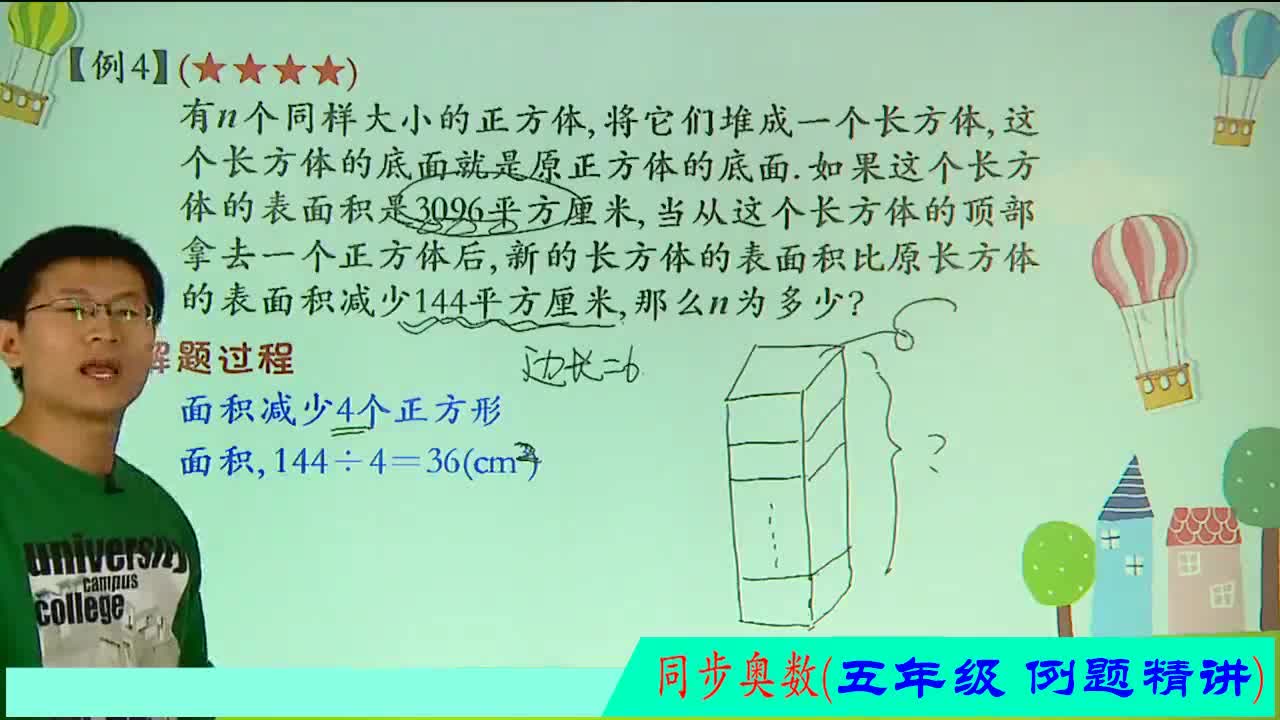 【例4】(★★★★)
有n个同样大小的正方体,将它们堆成一个长方体,这
个长方体的底面就是原正方体的底面.如果这个长方
体的表面积是3096平方厘米,当从这个长方体的顶部
拿去一个正方体后,新的长方体的表面积比原长方体
的表面积减少144平方厘米,那么n为多少?
解题过程
边长=6
面积减少4个正方形
面积,144÷4=36(cm²)
?
university
campus
college
同步奥数(五年级 例题精讲)